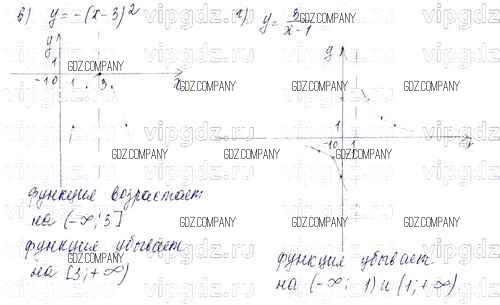 в) y = -(x-3)²
y
1
-1 0 1 3 x
функция возрастает
на (-∞; 3]
функция убывает
на [3; +∞)
г) y = 3/(x-1)
y
1
-1 0 1 x
функция убывает
на (-∞; 1) и (1; +∞)
GDZ.COMPANY
vipgdz.ru